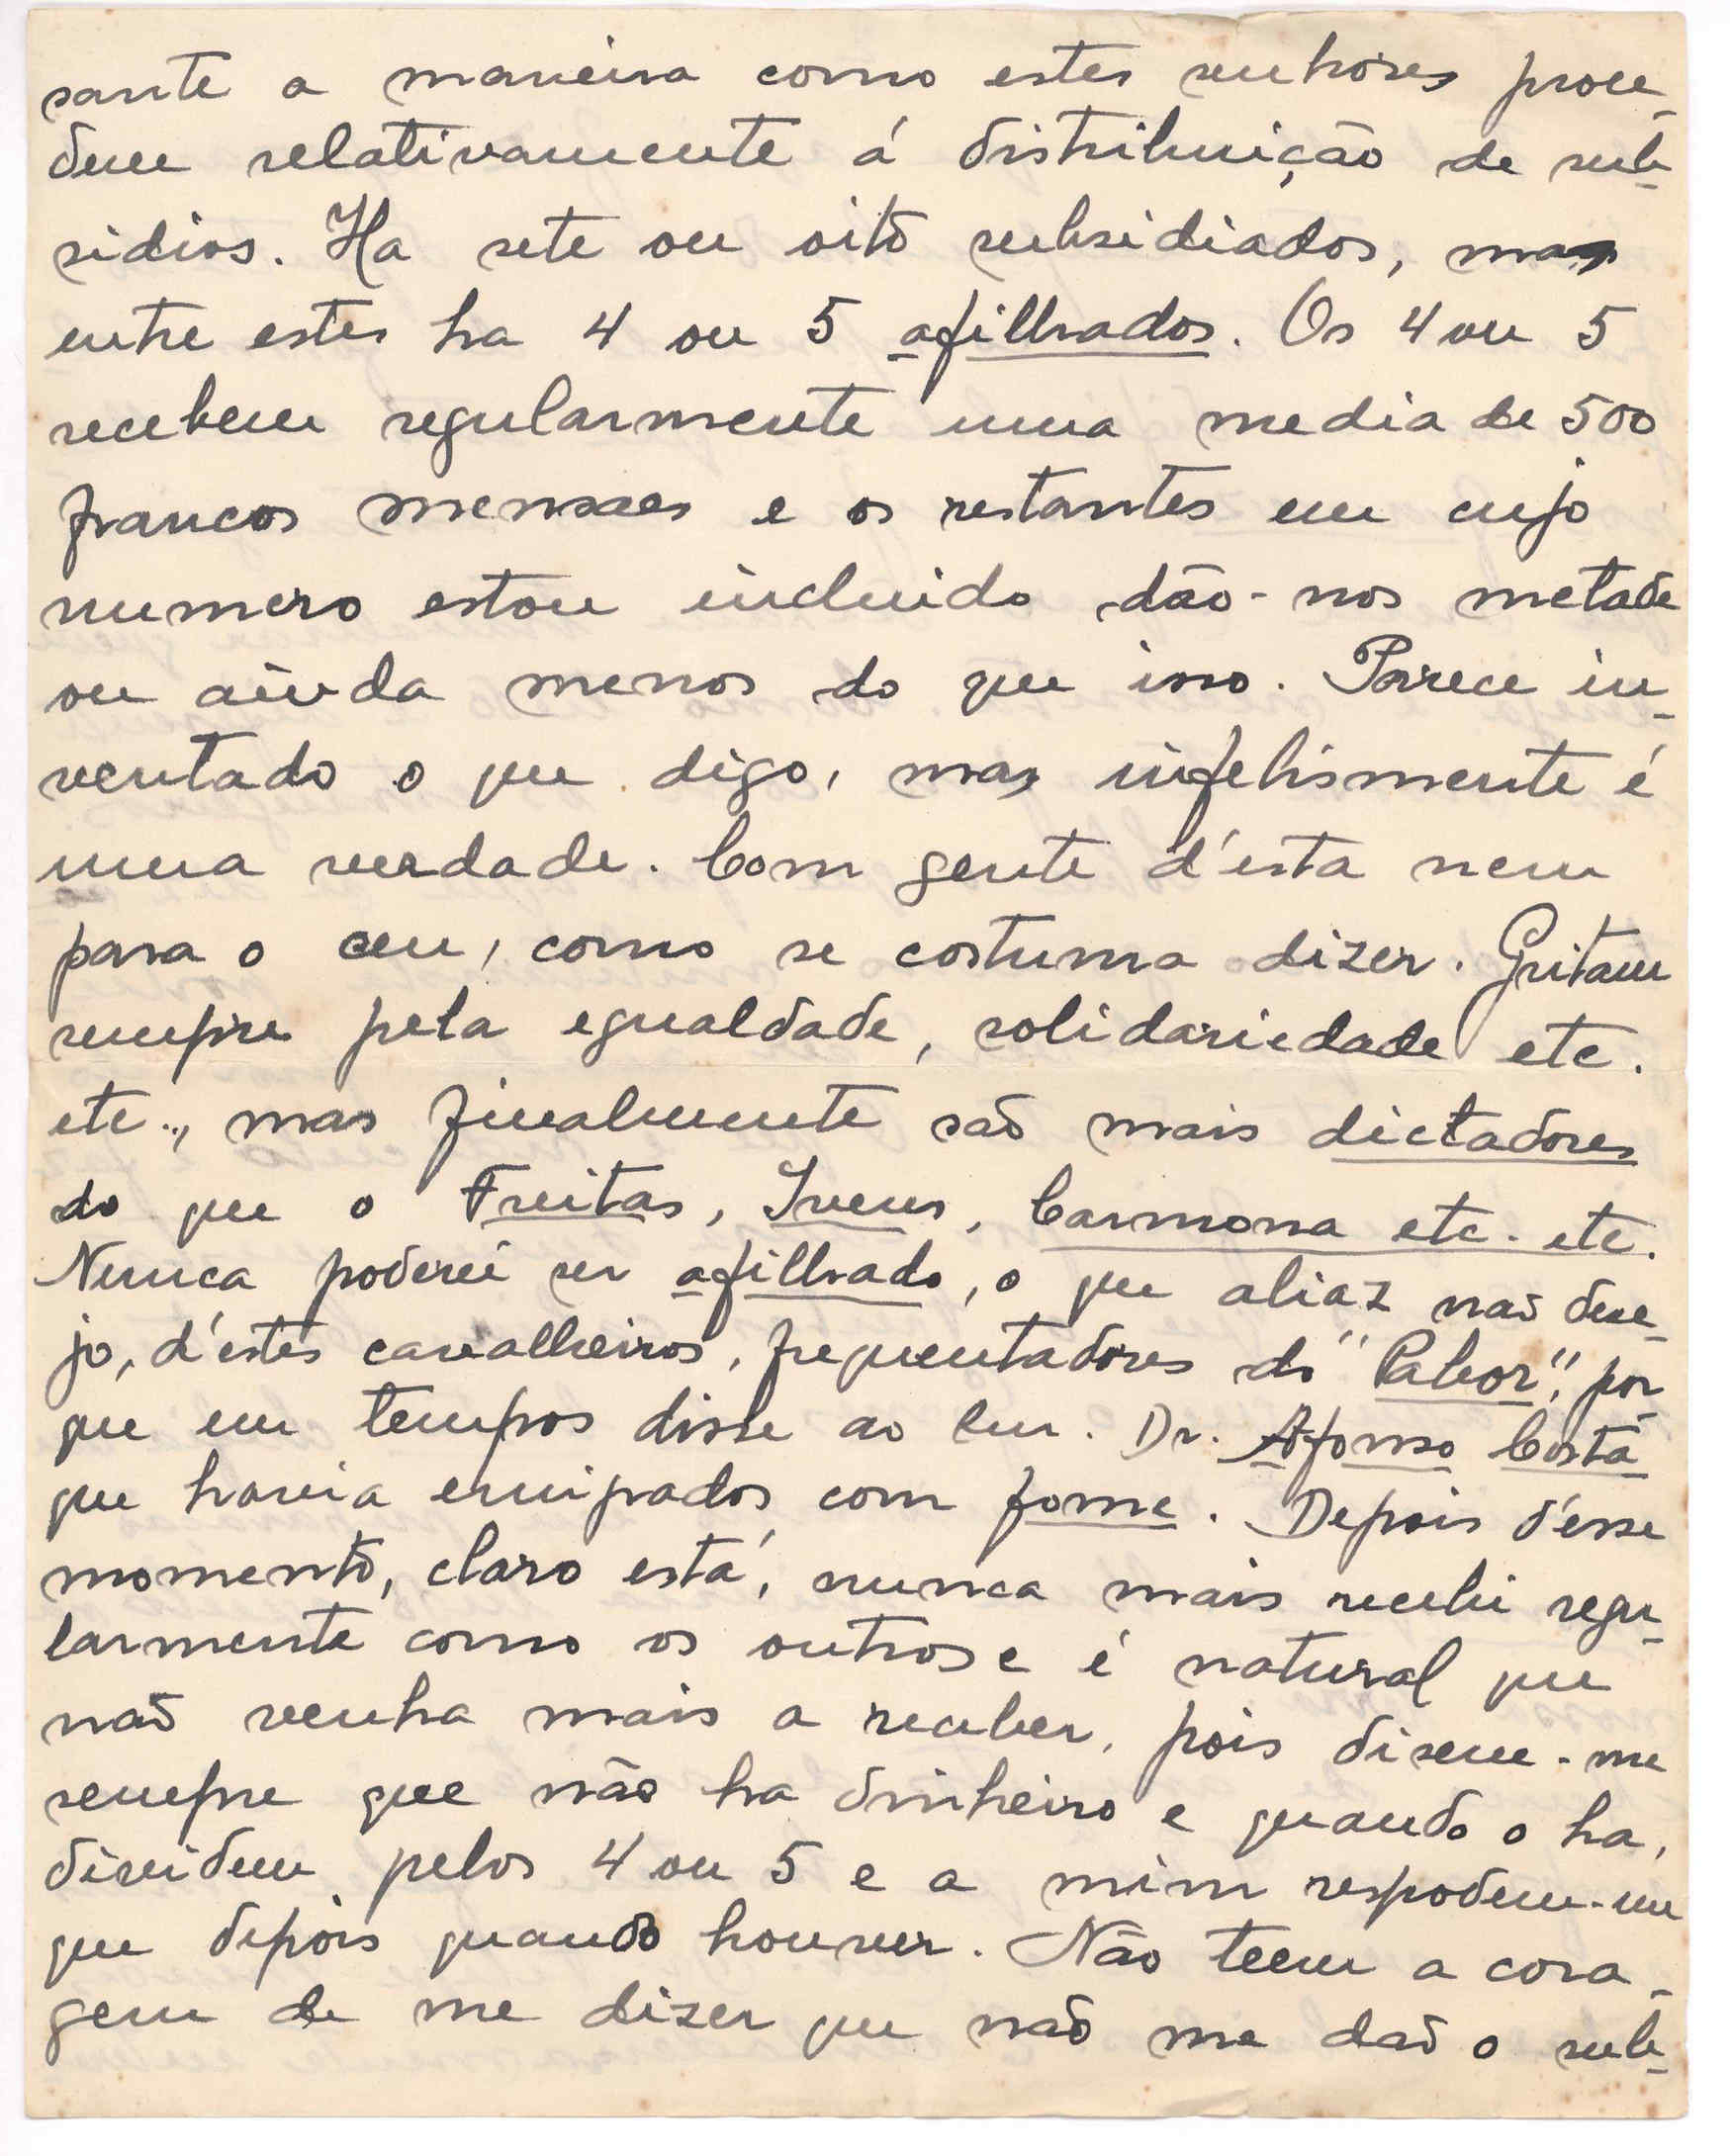 sante a maneira como estes senhores proce-
dem relativamente á distribuição de sub-
sidios. Ha sete ou oito subsidiados, mas
entre estes ha 4 ou 5 afilhados. Os 4 ou 5
recebem regularmente uma media de 500
francos mensaes e os restantes em cujo
numero estou incluido dão-nos metade
ou ainda menos do que isso. Parece in-
ventado o que digo, mas infelismente é
uma verdade. Com gente d'esta nem
para o ceu, como se costuma dizer. Gritam
sempre pela egualdade, solidariedade etc.
etc., mas finalmente são mais dictadores
do que o Freitas, Ivens, Carmona etc. etc.
Nunca poderei ser afilhado, o que aliaz não dese-
jo, d'estes cavalheiros, frequentadores do "Cahor", por-
que em tempos disse ao Snr. Dr. Afonso Costa
que havia emigrados com fome. Depois d'esse
momento, claro está, nunca mais recebi regu-
larmente como os outros e é natural que
não venha mais a receber, pois disem-me
sempre que não ha dinheiro e quando o ha,
dividem pelos 4 ou 5 e a mim respodem-me
que depois quando houver. Não teem a cora-
gem de me dizer que não me dão o sub-